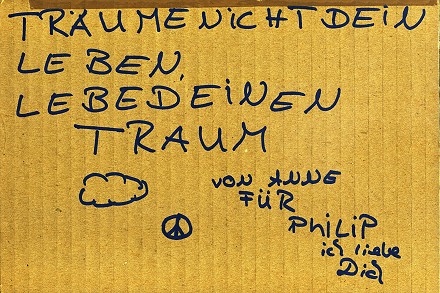 TRÄUME NICHT DEIN
LEBEN,
LEBE DEINEN
TRAUM
VON ANNE
FÜR
PHILIP
ich liebe
Dich